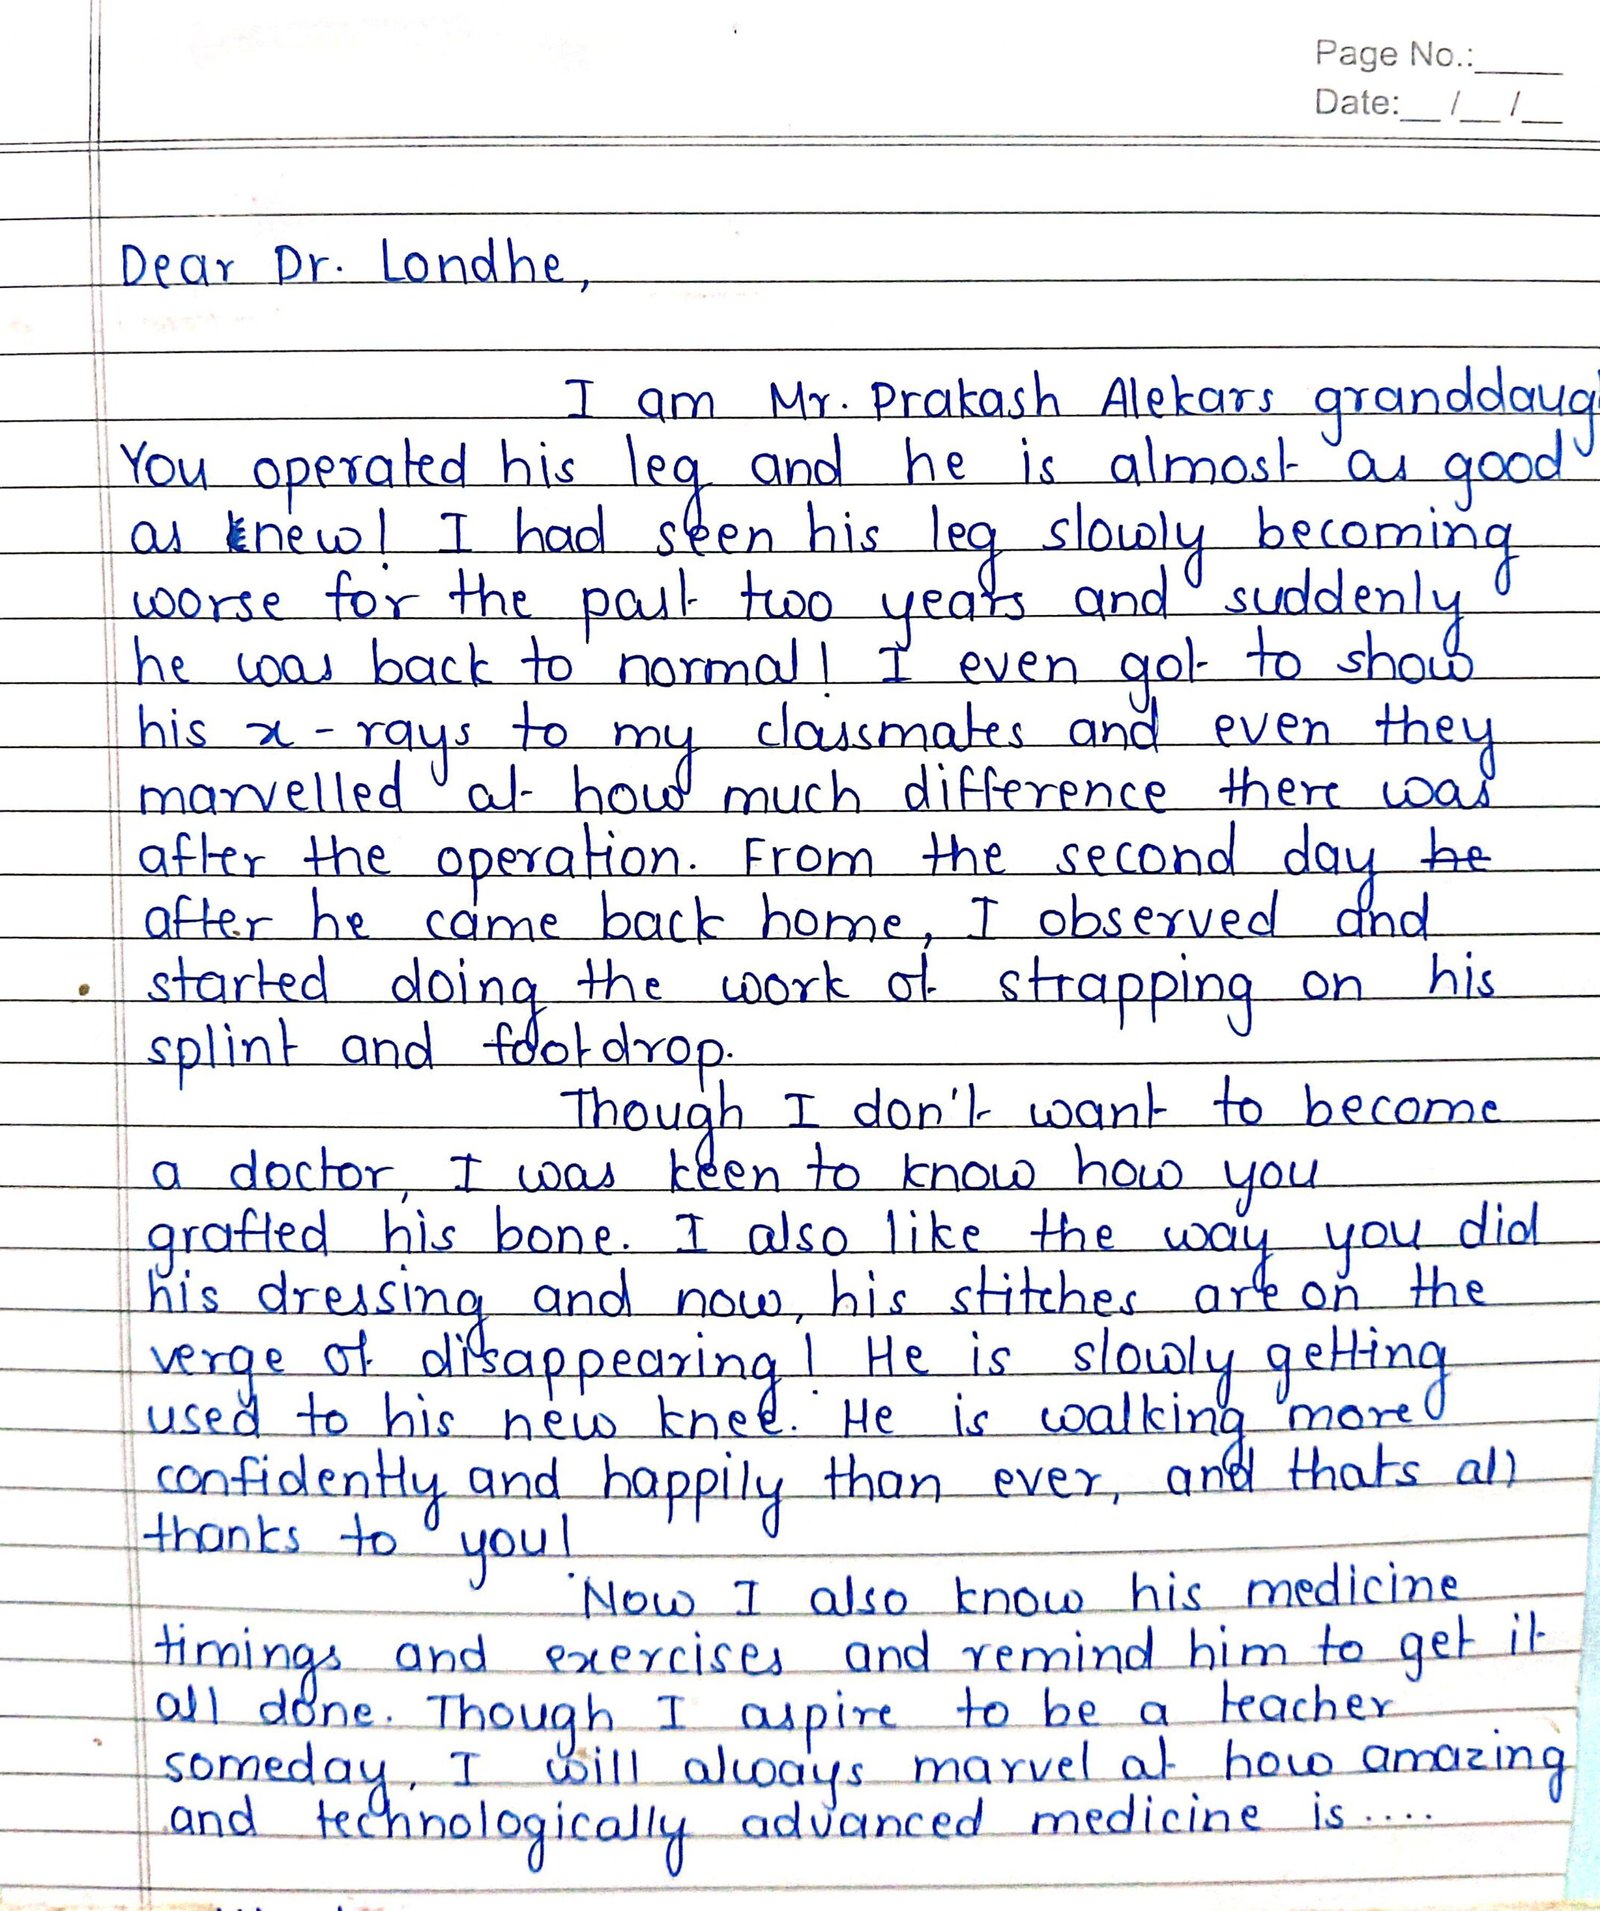 Page No.:____
Date:__/__/__
Dear Dr. Londhe,
I am Mr. Prakash Alekars granddaug
You operated his leg and he is almost as good
as new! I had seen his leg slowly becoming
worse for the past two years and suddenly
he was back to normal! I even got to show
his x-rays to my classmates and even they
marvelled at how much difference there was
after the operation. From the second day he
after he came back home, I observed and
started doing the work of strapping on his
splint and footdrop.
Though I don't want to become
a doctor, I was keen to know how you
grafted his bone. I also like the way you did
his dressing and now, his stitches are on the
verge of disappearing! He is slowly getting
used to his new knee. He is walking more
confidently and happily than ever, and thats all
thanks to you!
Now I also know his medicine
timings and exercises and remind him to get it
all done. Though I aspire to be a teacher
someday, I will always marvel at how amazing
and technologically advanced medicine is....